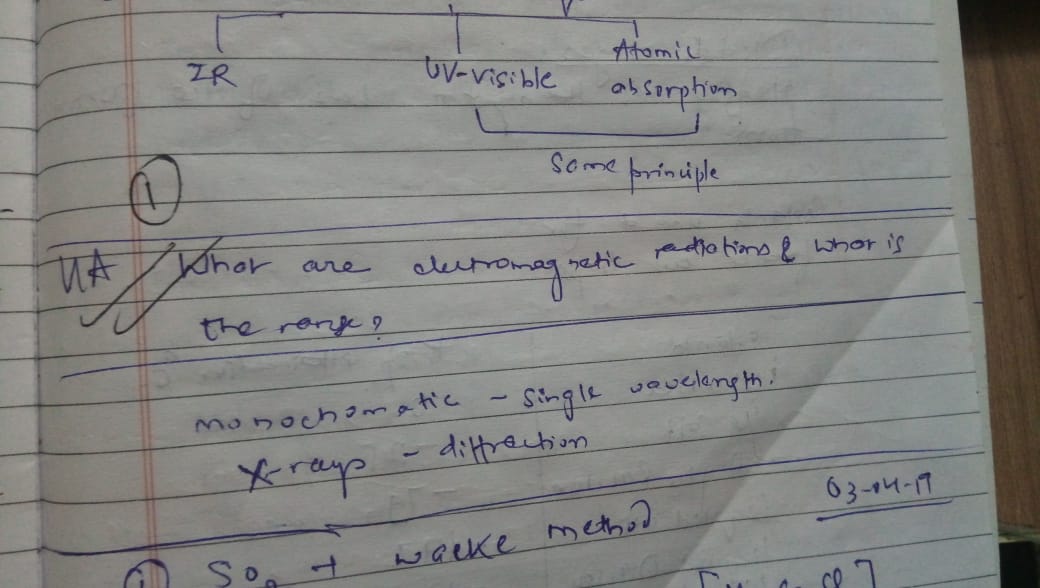 IR
UV-visible
Atomic
absorption
Same principle
1
UA What are electromagnetic radiations & what is
the range?
monochomatic - single wavelength.
X-rays - diffraction
03-04-19
i) So₂ + method